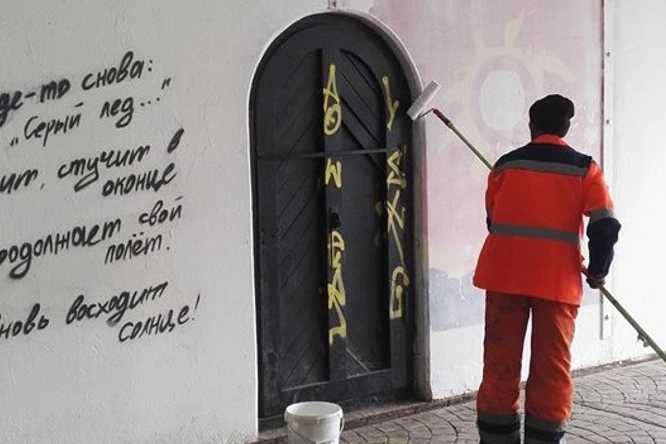 де-то снова:
„Серый лед..."
ит, стучит в
оконце
родолжает свой
полёт.
новь восходит
солнце!